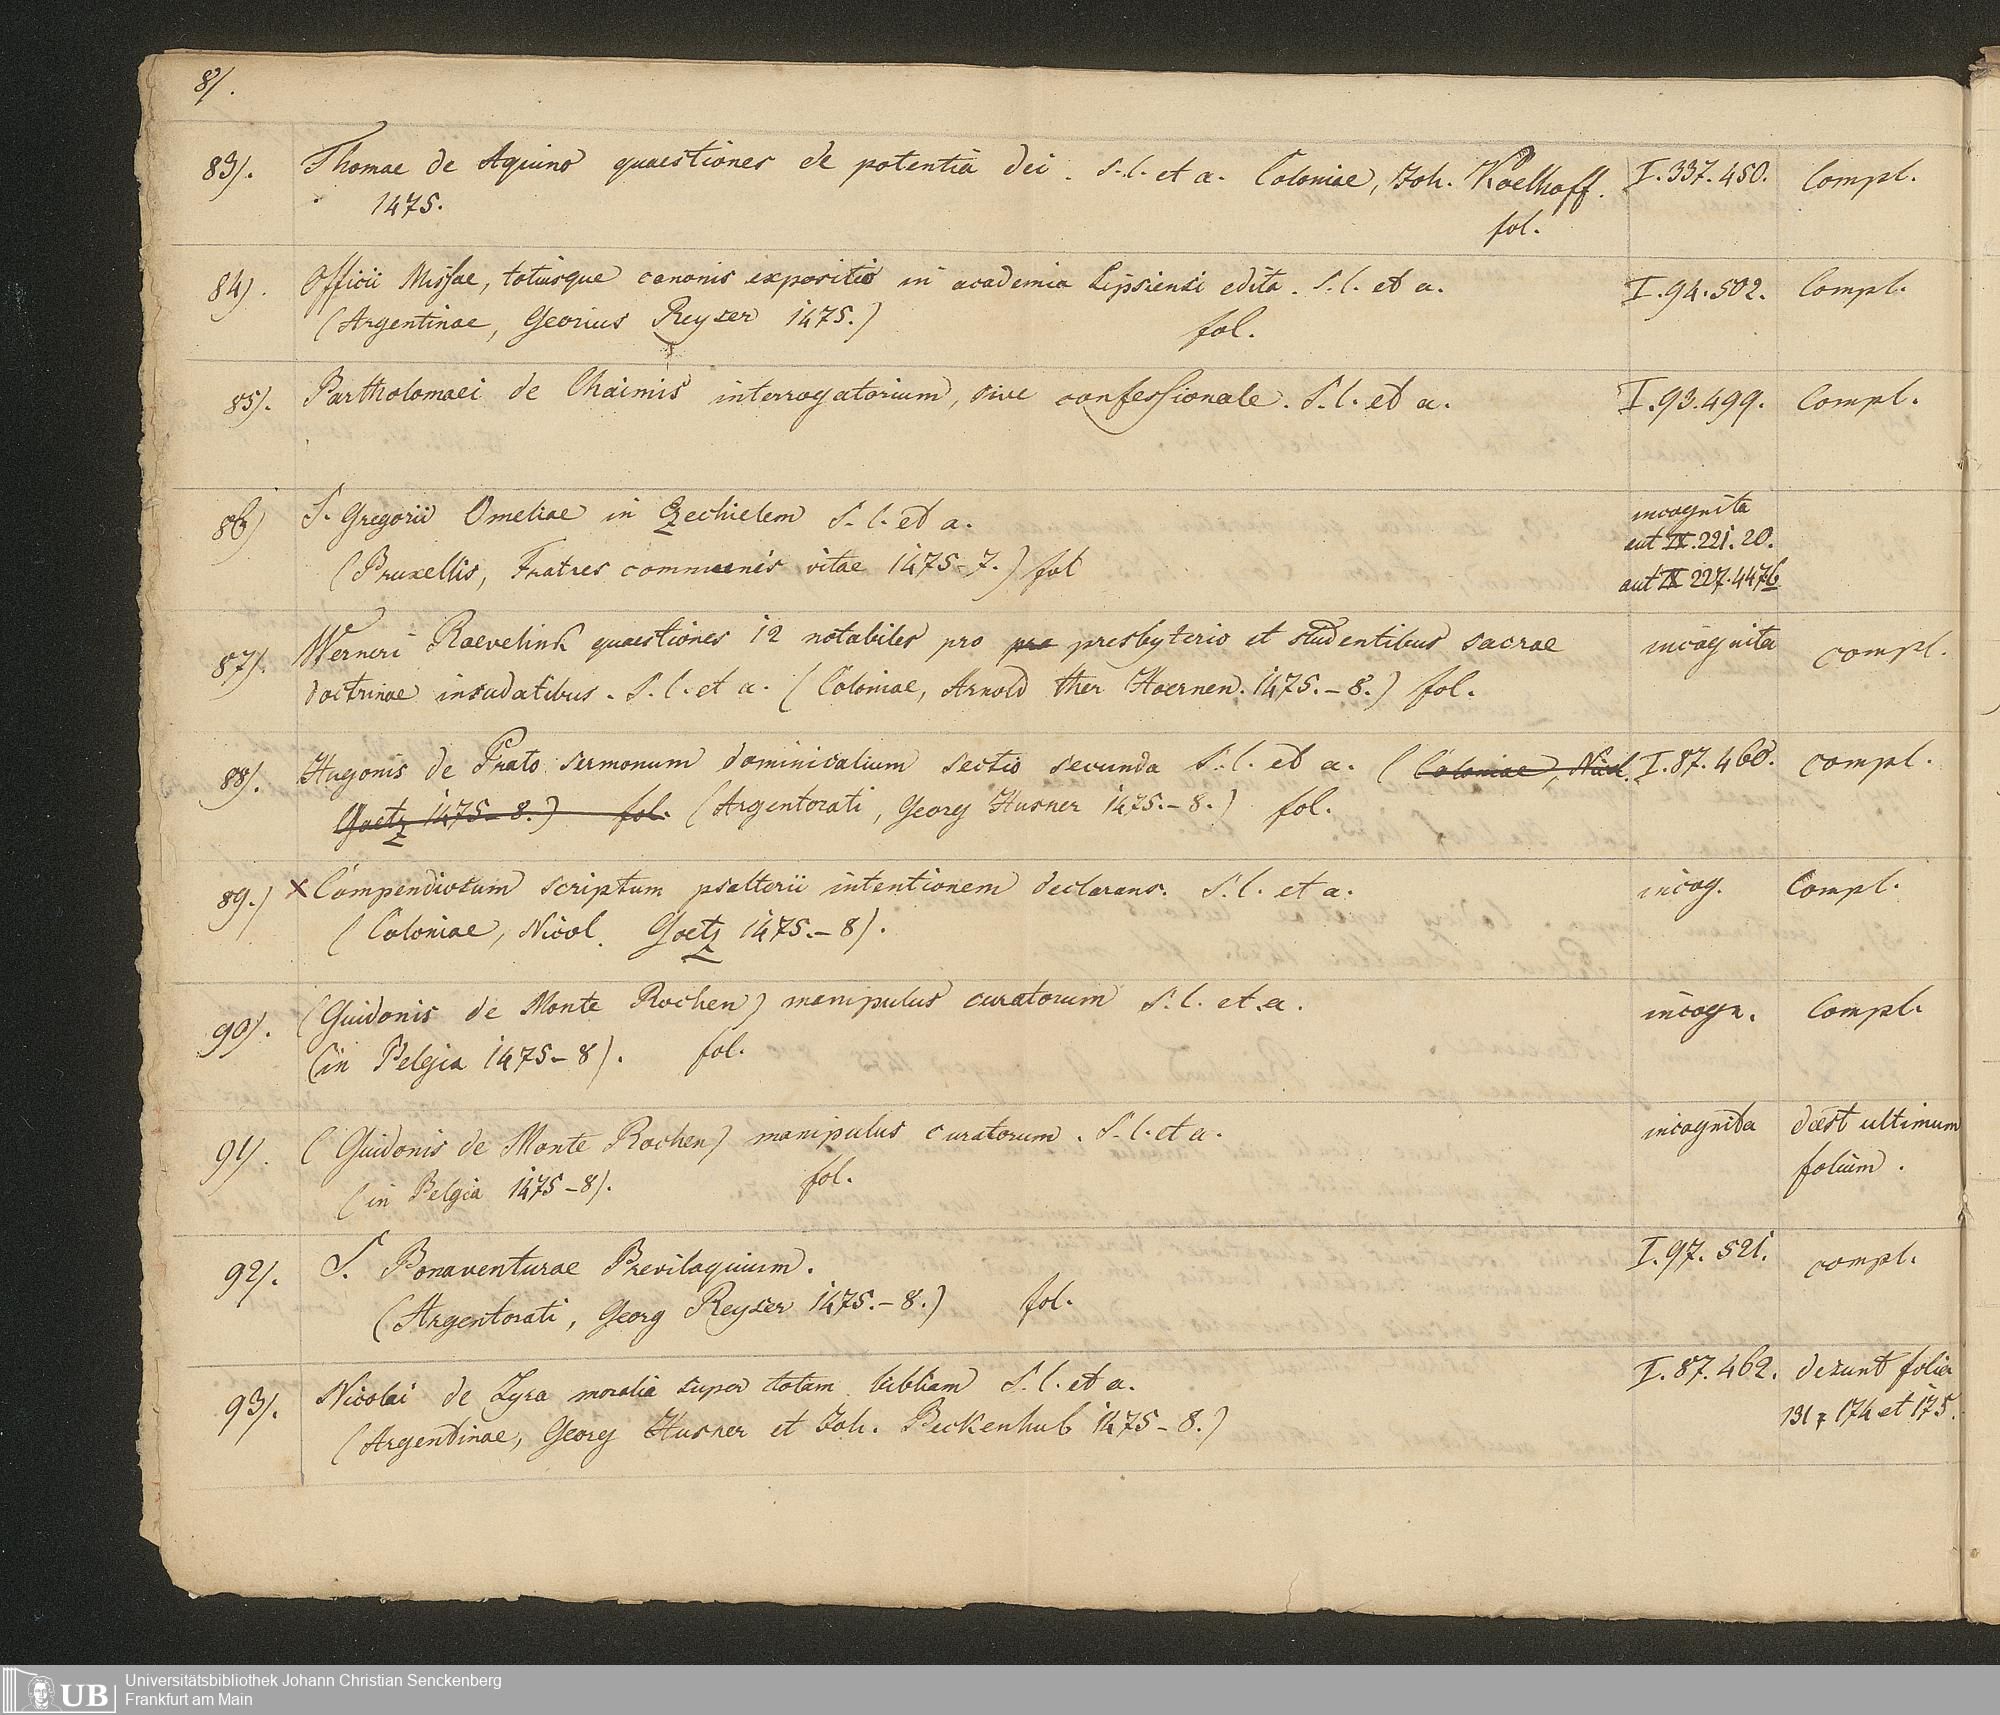 8/.
83/. Thomae de Aquino quaestiones de potentia dei. S. l. et a. Coloniae, Joh. Koelhoff. I. 337. 450. Compl.
1475.
fol.
84/. Officii Missae, totiusque canonis expositio in academia Lipsiensi edita. S. l. et a. I. 94. 502. Compl.
(Argentinae, Georius Reyser 1475.) fol.
85/. Bartholomaei de Chaimis interrogatorium, sive confessionale. S. l. et a. I. 93. 499. Compl.
86) S. Gregorii Omeliae in Ezechielem S. l. et a. incognita
(Bruxellis, Fratres communis vitae 1475-7.) fol aut IX. 221. 20.
aut IX 227. 447b
87/. Werneri Raevelink quaestiones 12 notabiles pro pro presbyterio et studentibus sacrae incognita compl.
doctrinae insudatibus. S. l. et a. (Coloniae, Arnold ther Hoernen. 1475.-8.) fol.
88/. Hugonis de Prato sermonum dominicalium sectio secunda S. l. et a. (Coloniae, Nicol. I. 87. 460. compl.
Goetz 1475-8.) fol. (Argentorati, Georg Husner 1475.-8.) fol.
89.) x Compendiosum scriptum psalterii intentionem declarans. S. l. et a. incog. Compl.
(Coloniae, Nicol. Goetz 1475.-8).
90/. (Guidonis de Monte Rochen) manipulus curatorum S. l. et. a. incogn. Compl.
(in Belgia 1475-8). fol.
91/. (Guidonis de Monte Rochen) manipulus curatorum. S. l. et a. incognita deest ultimum
(in Belgia 1475-8). fol. folium.
92/. S. Bonaventurae Breviloquium. I. 97. 521. compl.
(Argentorati, Georg Reyser 1475.-8.) fol.
93/. Nicolai de Lyra moralia super totam bibliam S. l. et a. I. 87. 462. desunt folia
(Argentinae, Georg Husner et Joh. Beckenhub 1475-8.) 131, 174 et 175.
UB Universitätsbibliothek Johann Christian Senckenberg
Frankfurt am Main